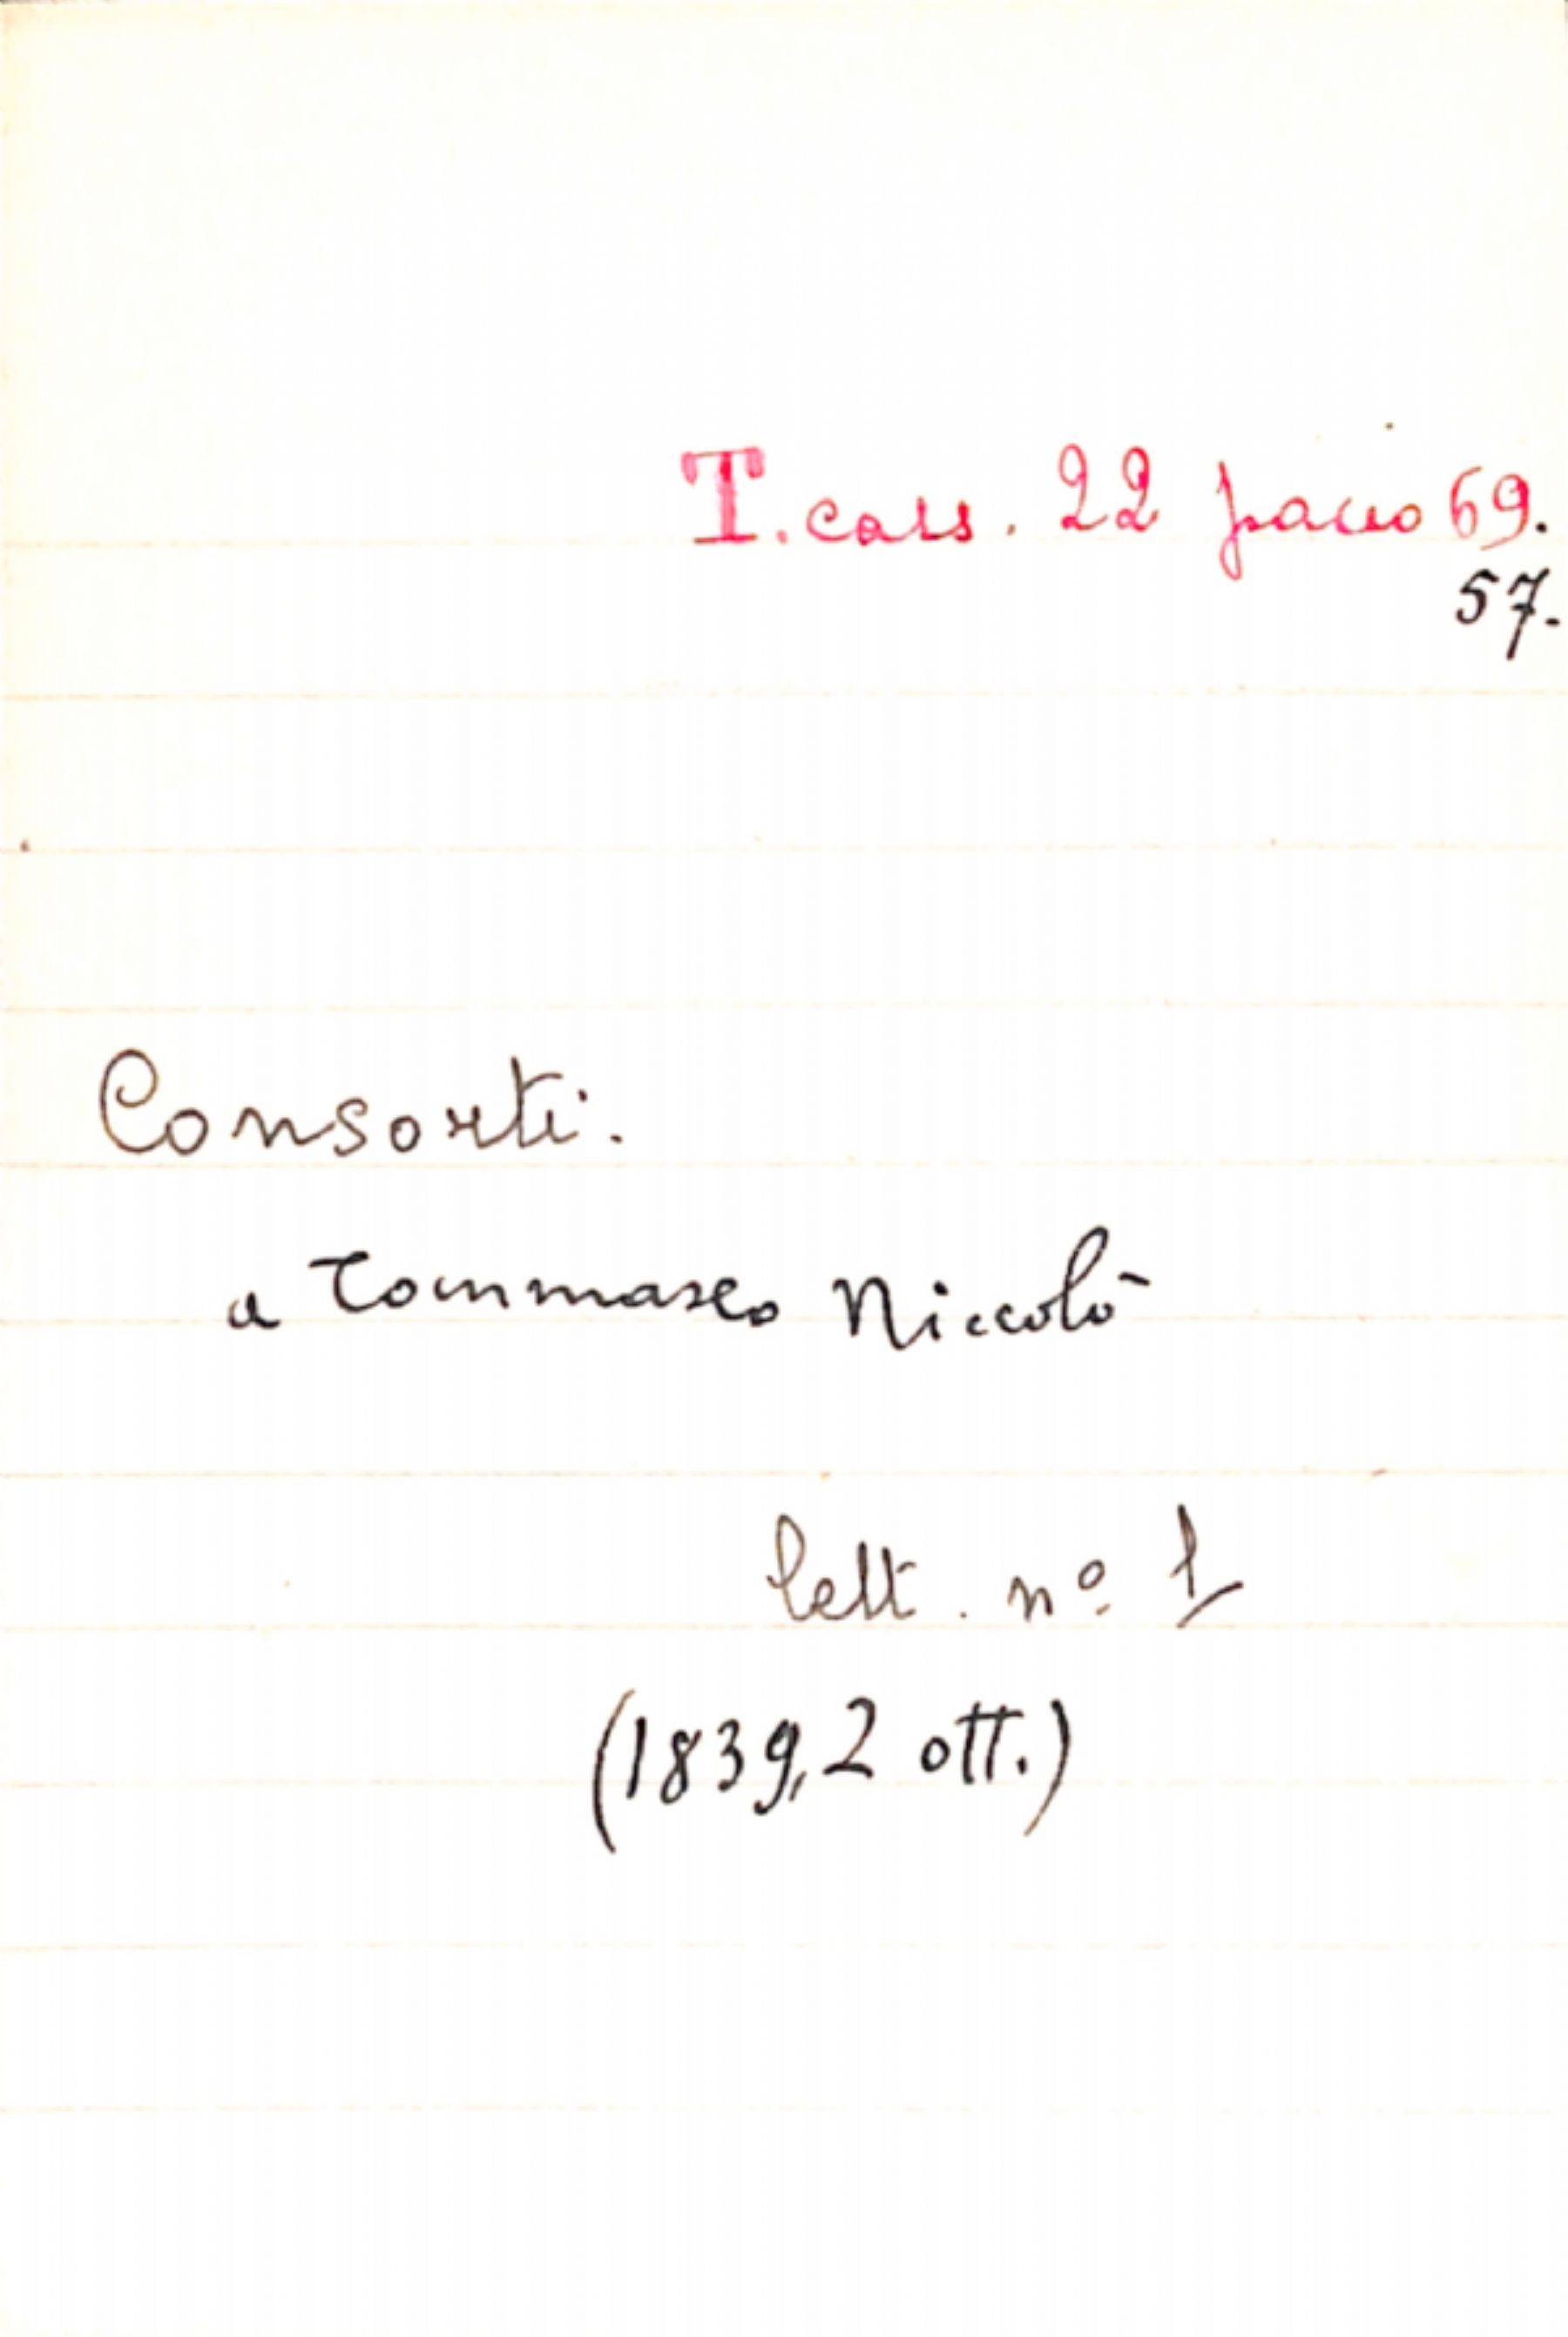 T. cass. 22 pacco 69.
57.
Consorti.
a Tommaseo Niccolò
lett. nº 1
(1839, 2 ott.)